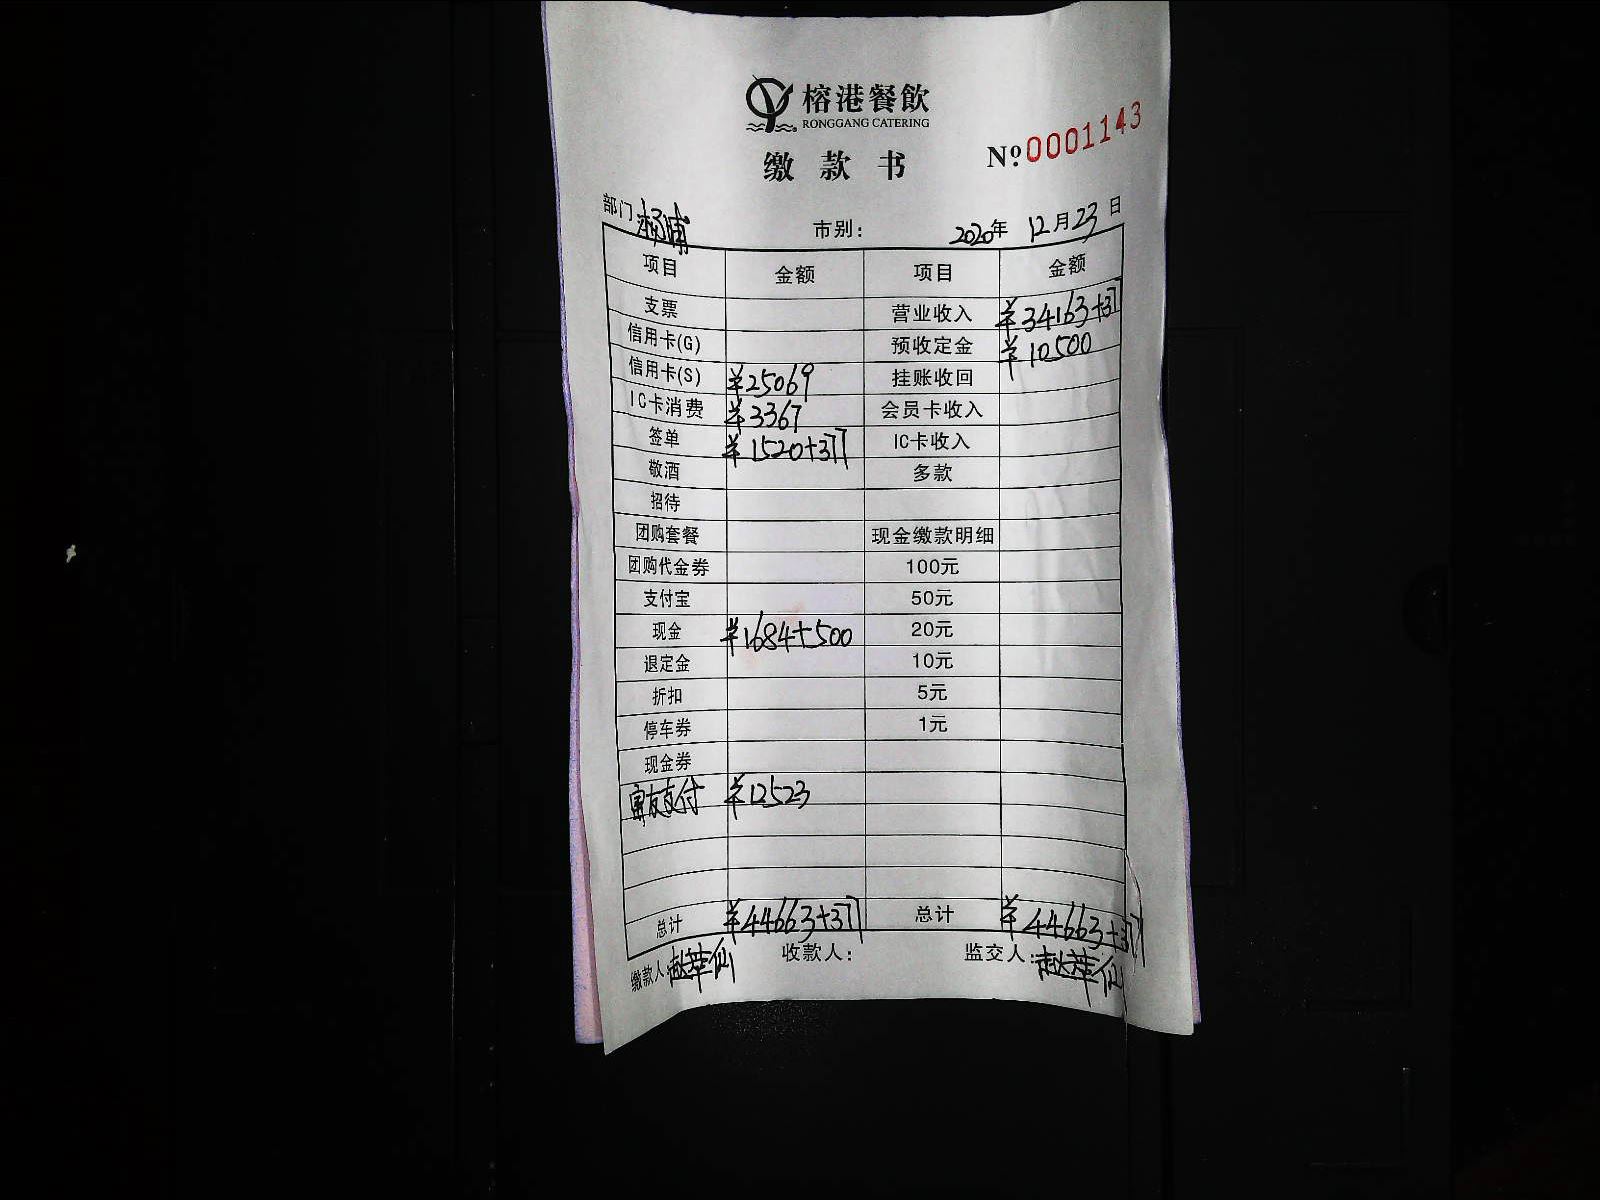 榕港餐飲
RONGGANG CATERING
缴款书
Nº0001143
部门 杨浦 市别： 2020年 12月23日
项目 金额 项目 金额
支票 营业收入 ¥34163+377
信用卡(G) 预收定金 ¥10500
信用卡(S) ¥25069 挂账收回
IC卡消费 ¥3367 会员卡收入
签单 ¥1520+377 IC卡收入
敬酒 多款
招待
团购套餐 现金缴款明细
团购代金券 100元
支付宝 50元
现金 ¥1684+500 20元
退定金 10元
折扣 5元
停车券 1元
现金券
支付 ¥12523
总计 ¥44663+377 总计 ¥44663+377
缴款人： 赵萍仙 收款人： 监交人： 赵萍仙